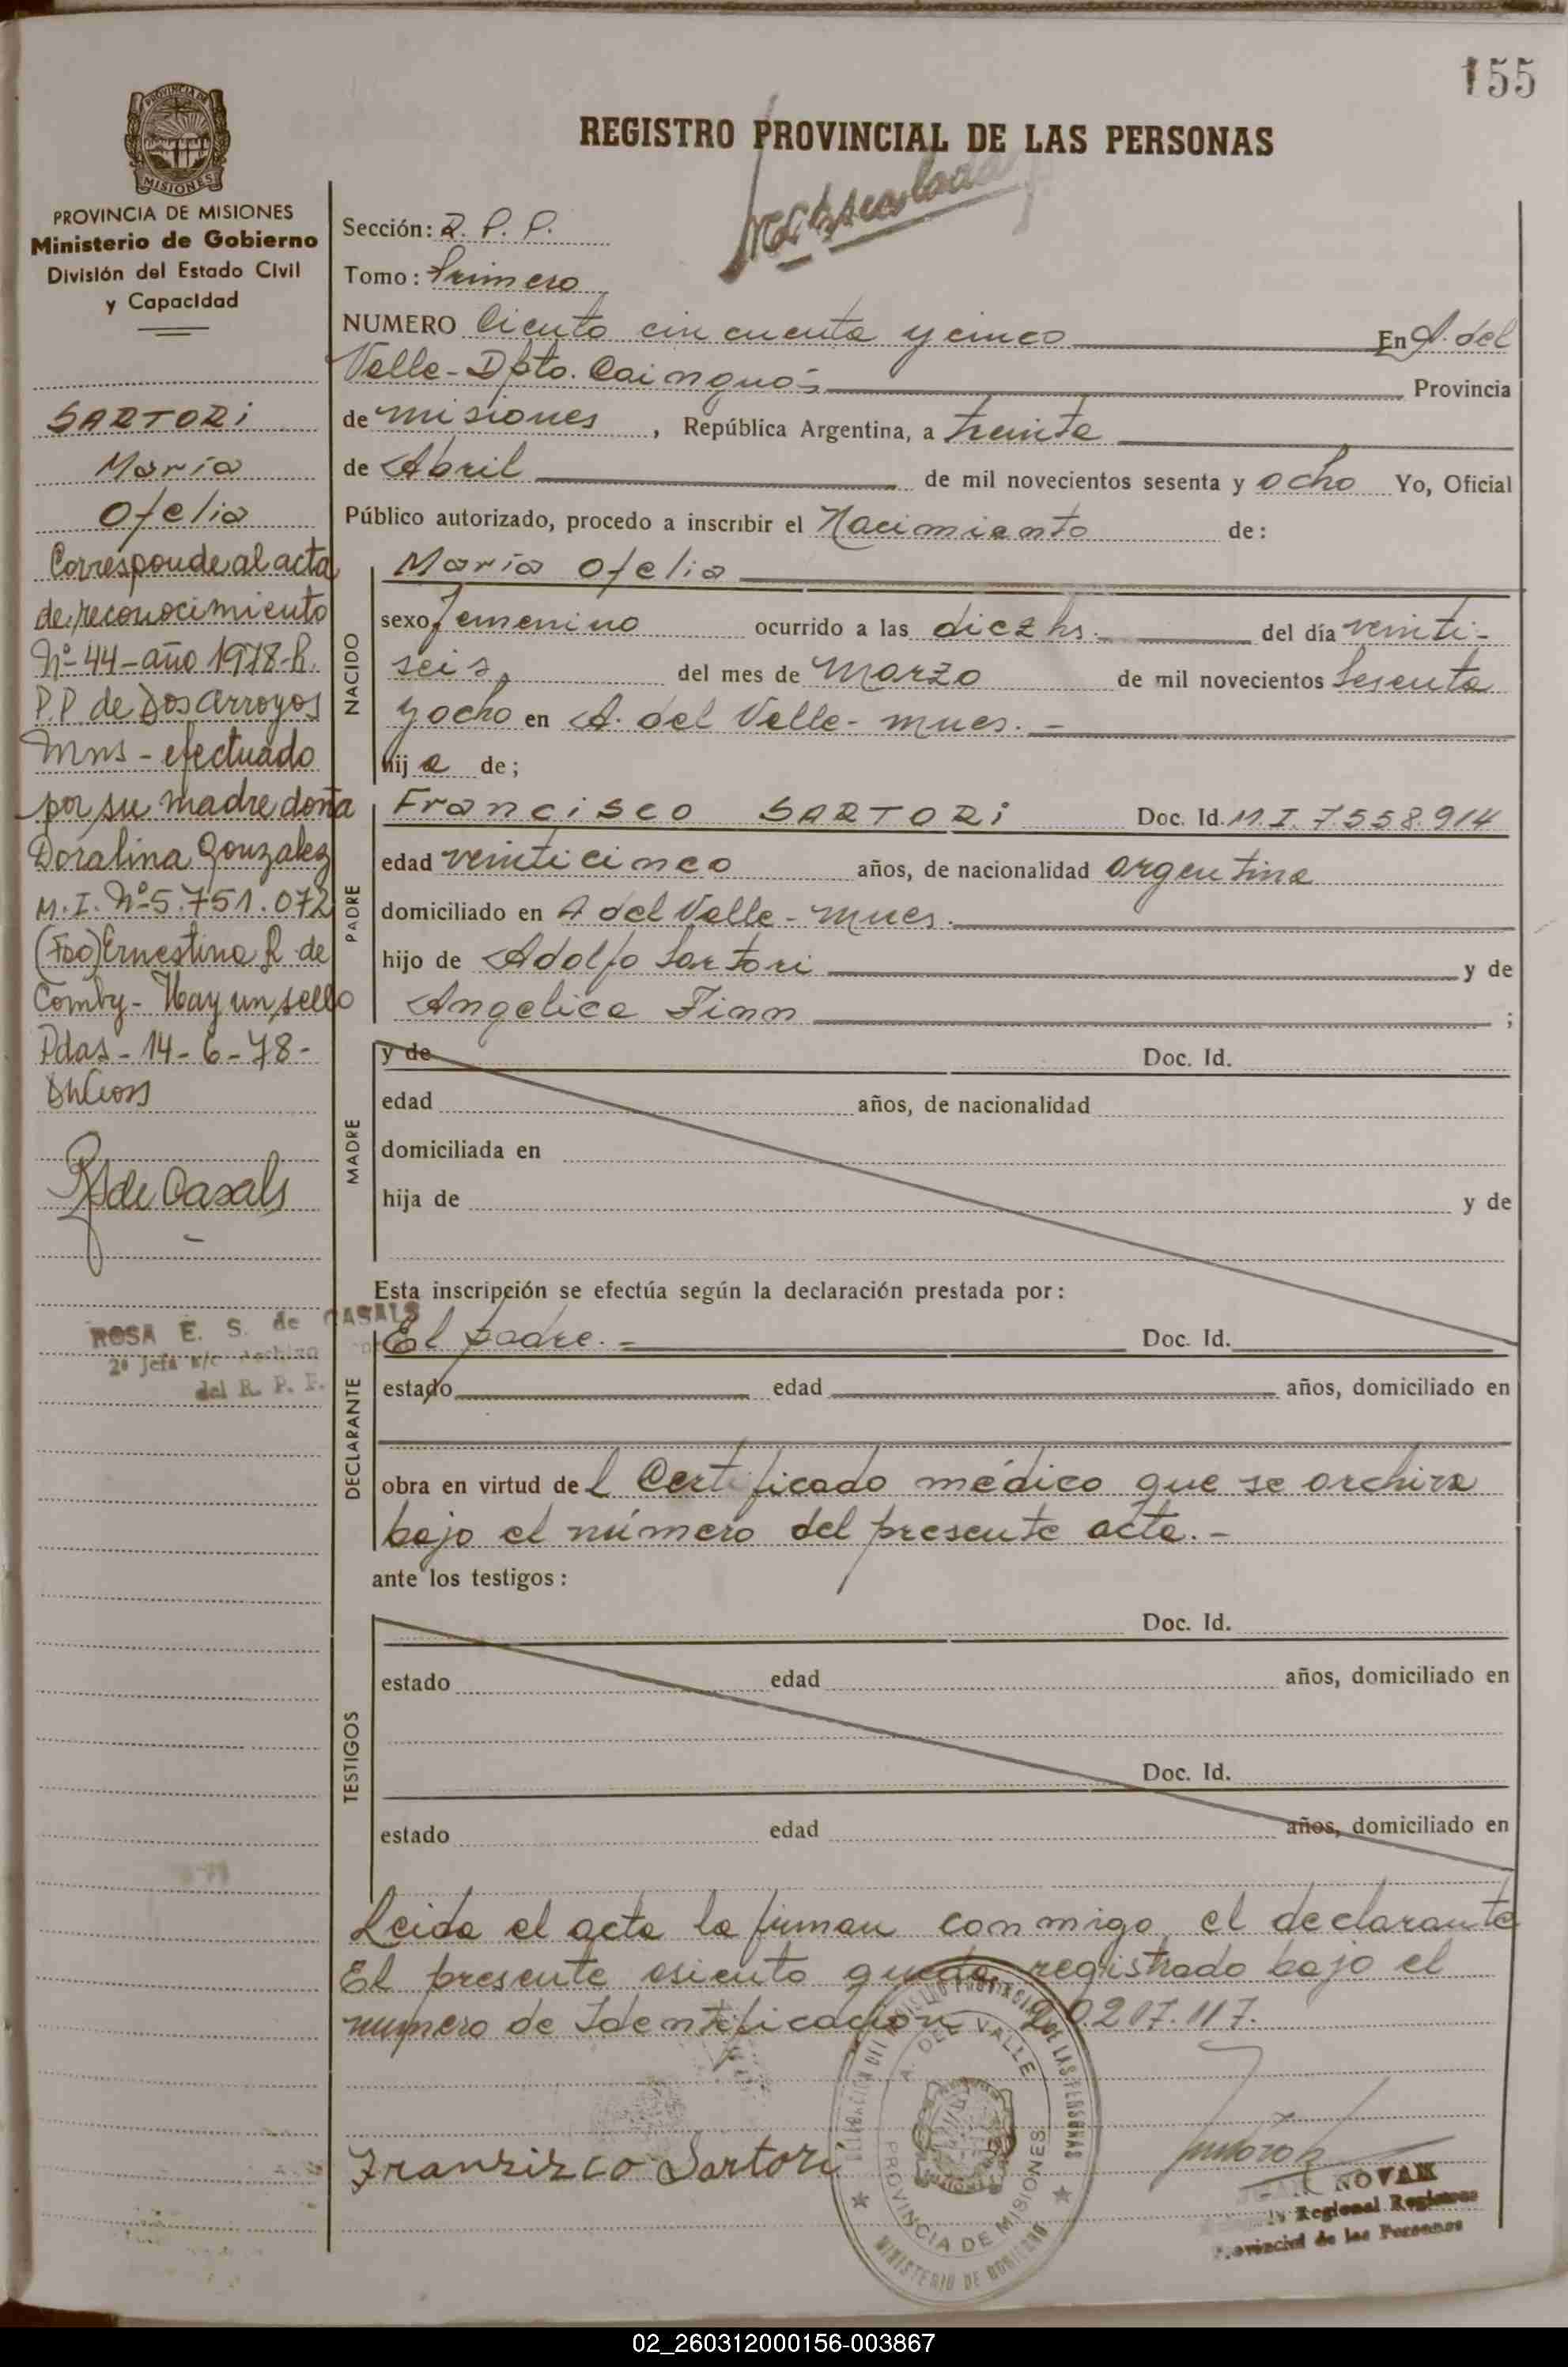 155
REGISTRO PROVINCIAL DE LAS PERSONAS
PROVINCIA DE
MISIONES
PROVINCIA DE MISIONES
Ministerio de Gobierno
División del Estado Civil
y Capacidad
SARTORi
María
Ofelia
Corresponde al acta
de reconocimiento
Nº 44 - año 1978 - R.
P.P de Dos Arroyos
Mns - efectuado
por su madre doña
Doralina Gonzalez
M.I. Nº 5.751.072
(Fdo) Ernestina R. de
Comby - Hay un sello
Pdas - 14 - 6 - 78 -
RS de Casals
ROSA E. S. de CASALS
2º Jefa
del R. P. P.
Sección: R. P. P.
Tomo: Primero
NUMERO Ciento cincuenta y cinco En A. del
Valle - Dpto. Cainguás Provincia
de misiones, República Argentina, a treinta
de Abril de mil novecientos sesenta y ocho Yo, Oficial
Público autorizado, procedo a inscribir el Nacimiento de:
NACIDO
María Ofelia
sexo femenino ocurrido a las diez hs. del día veinti-
seis del mes de Marzo de mil novecientos sesenta
y ocho en A. del Valle - mnes. -
hij a de;
PADRE
Francisco SARTORi Doc. Id. M.I. 7558.914
edad veinticinco años, de nacionalidad argentina
domiciliado en A del Valle - mnes.
hijo de Adolfo Sartori y de
Angelica Finn ;
MADRE
y de Doc. Id.
edad años, de nacionalidad
domiciliada en
hija de y de
Esta inscripción se efectúa según la declaración prestada por:
DECLARANTE
El padre. - Doc. Id.
estado edad años, domiciliado en
obra en virtud de l Certificado médico que se archiva
bajo el número del presente acta. -
ante los testigos:
TESTIGOS
Doc. Id.
estado edad años, domiciliado en
Doc. Id.
estado edad años, domiciliado en
Leida el acta la firman conmigo el declarante
El presente asiento queda registrado bajo el
numero de Identificación 20.207.117.
Franzizco Sartori
DELEGACION DEL REGISTRO PROVINCIAL DE LAS PERSONAS
A. DEL VALLE
PROVINCIA DE MISIONES
MINISTERIO DE GOBIERNO
NOVAK
Regional Registro
Provincial de las Personas
02_260312000156-003867